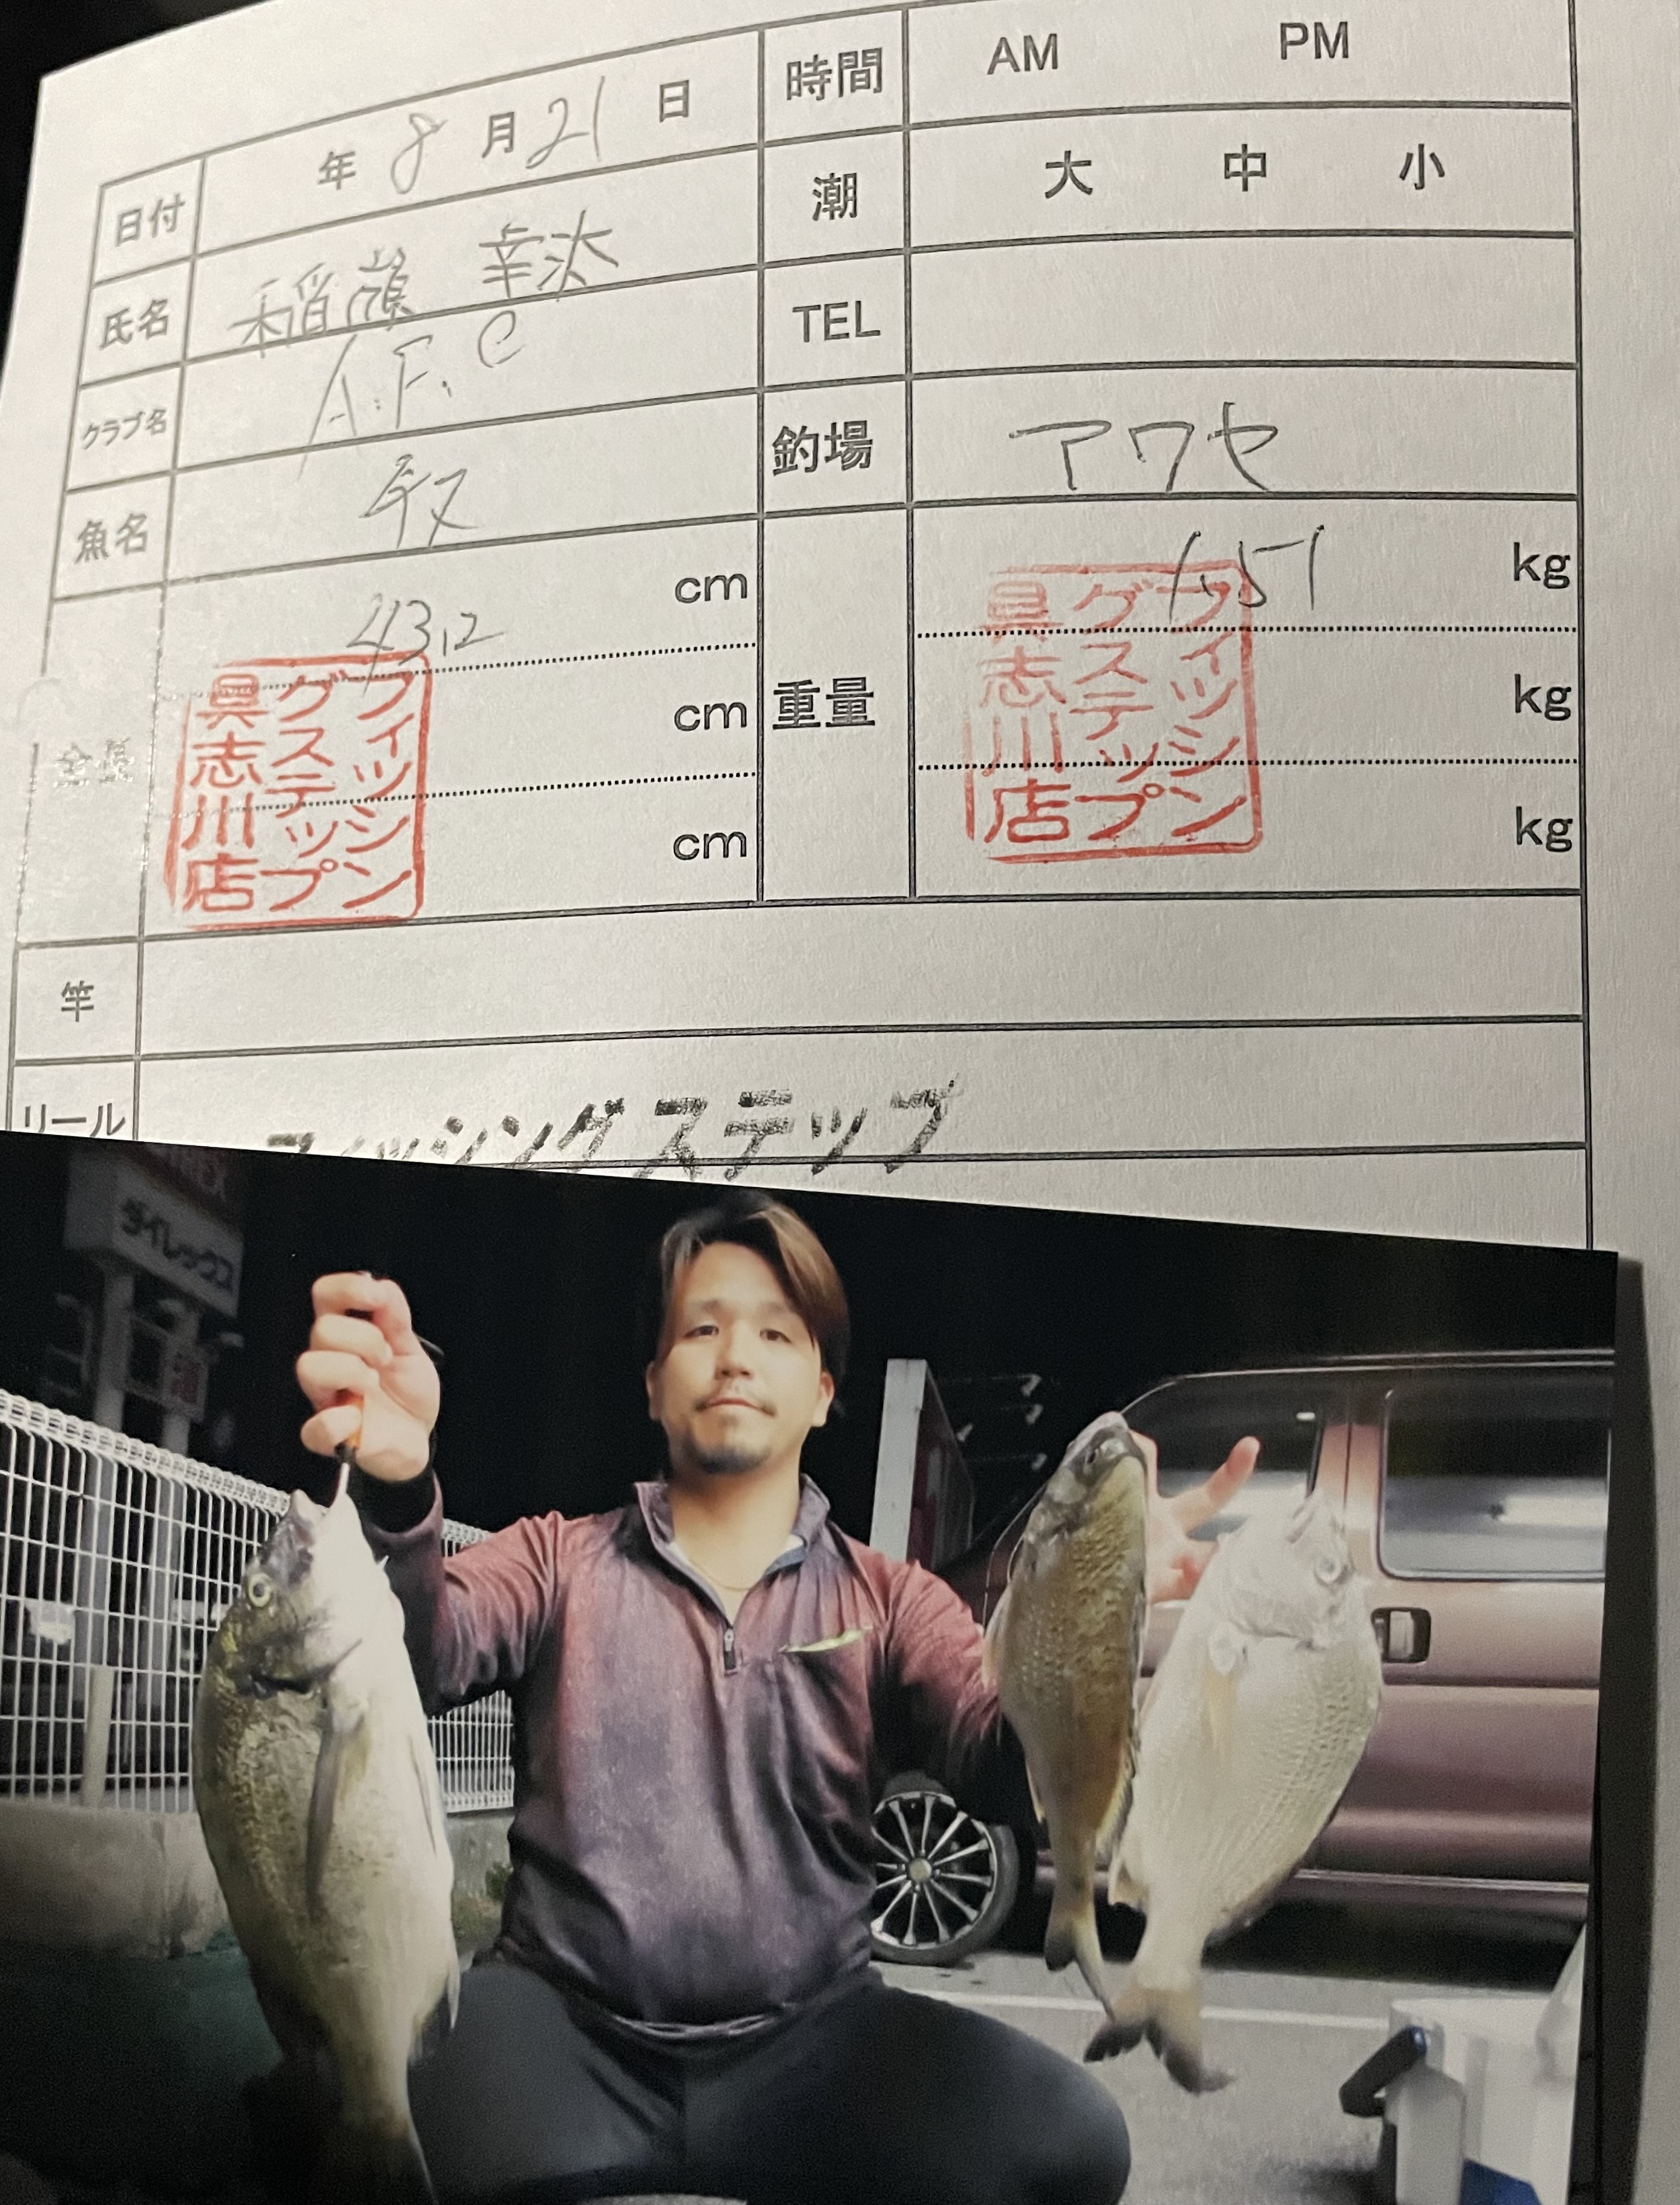 日付 年 8 月 21 日 時間 AM PM
潮 大 中 小
氏名 稲嶺 幸汰 TEL
クラブ名 A.F.C 釣場 アワセ
魚名
全長 43.2 cm 重量 1.51 kg
cm kg
cm kg
フィッシン
グステップ
具志川店
フィッシン
グステップ
具志川店
竿
リール
フィッシングステップ
ダイレックス